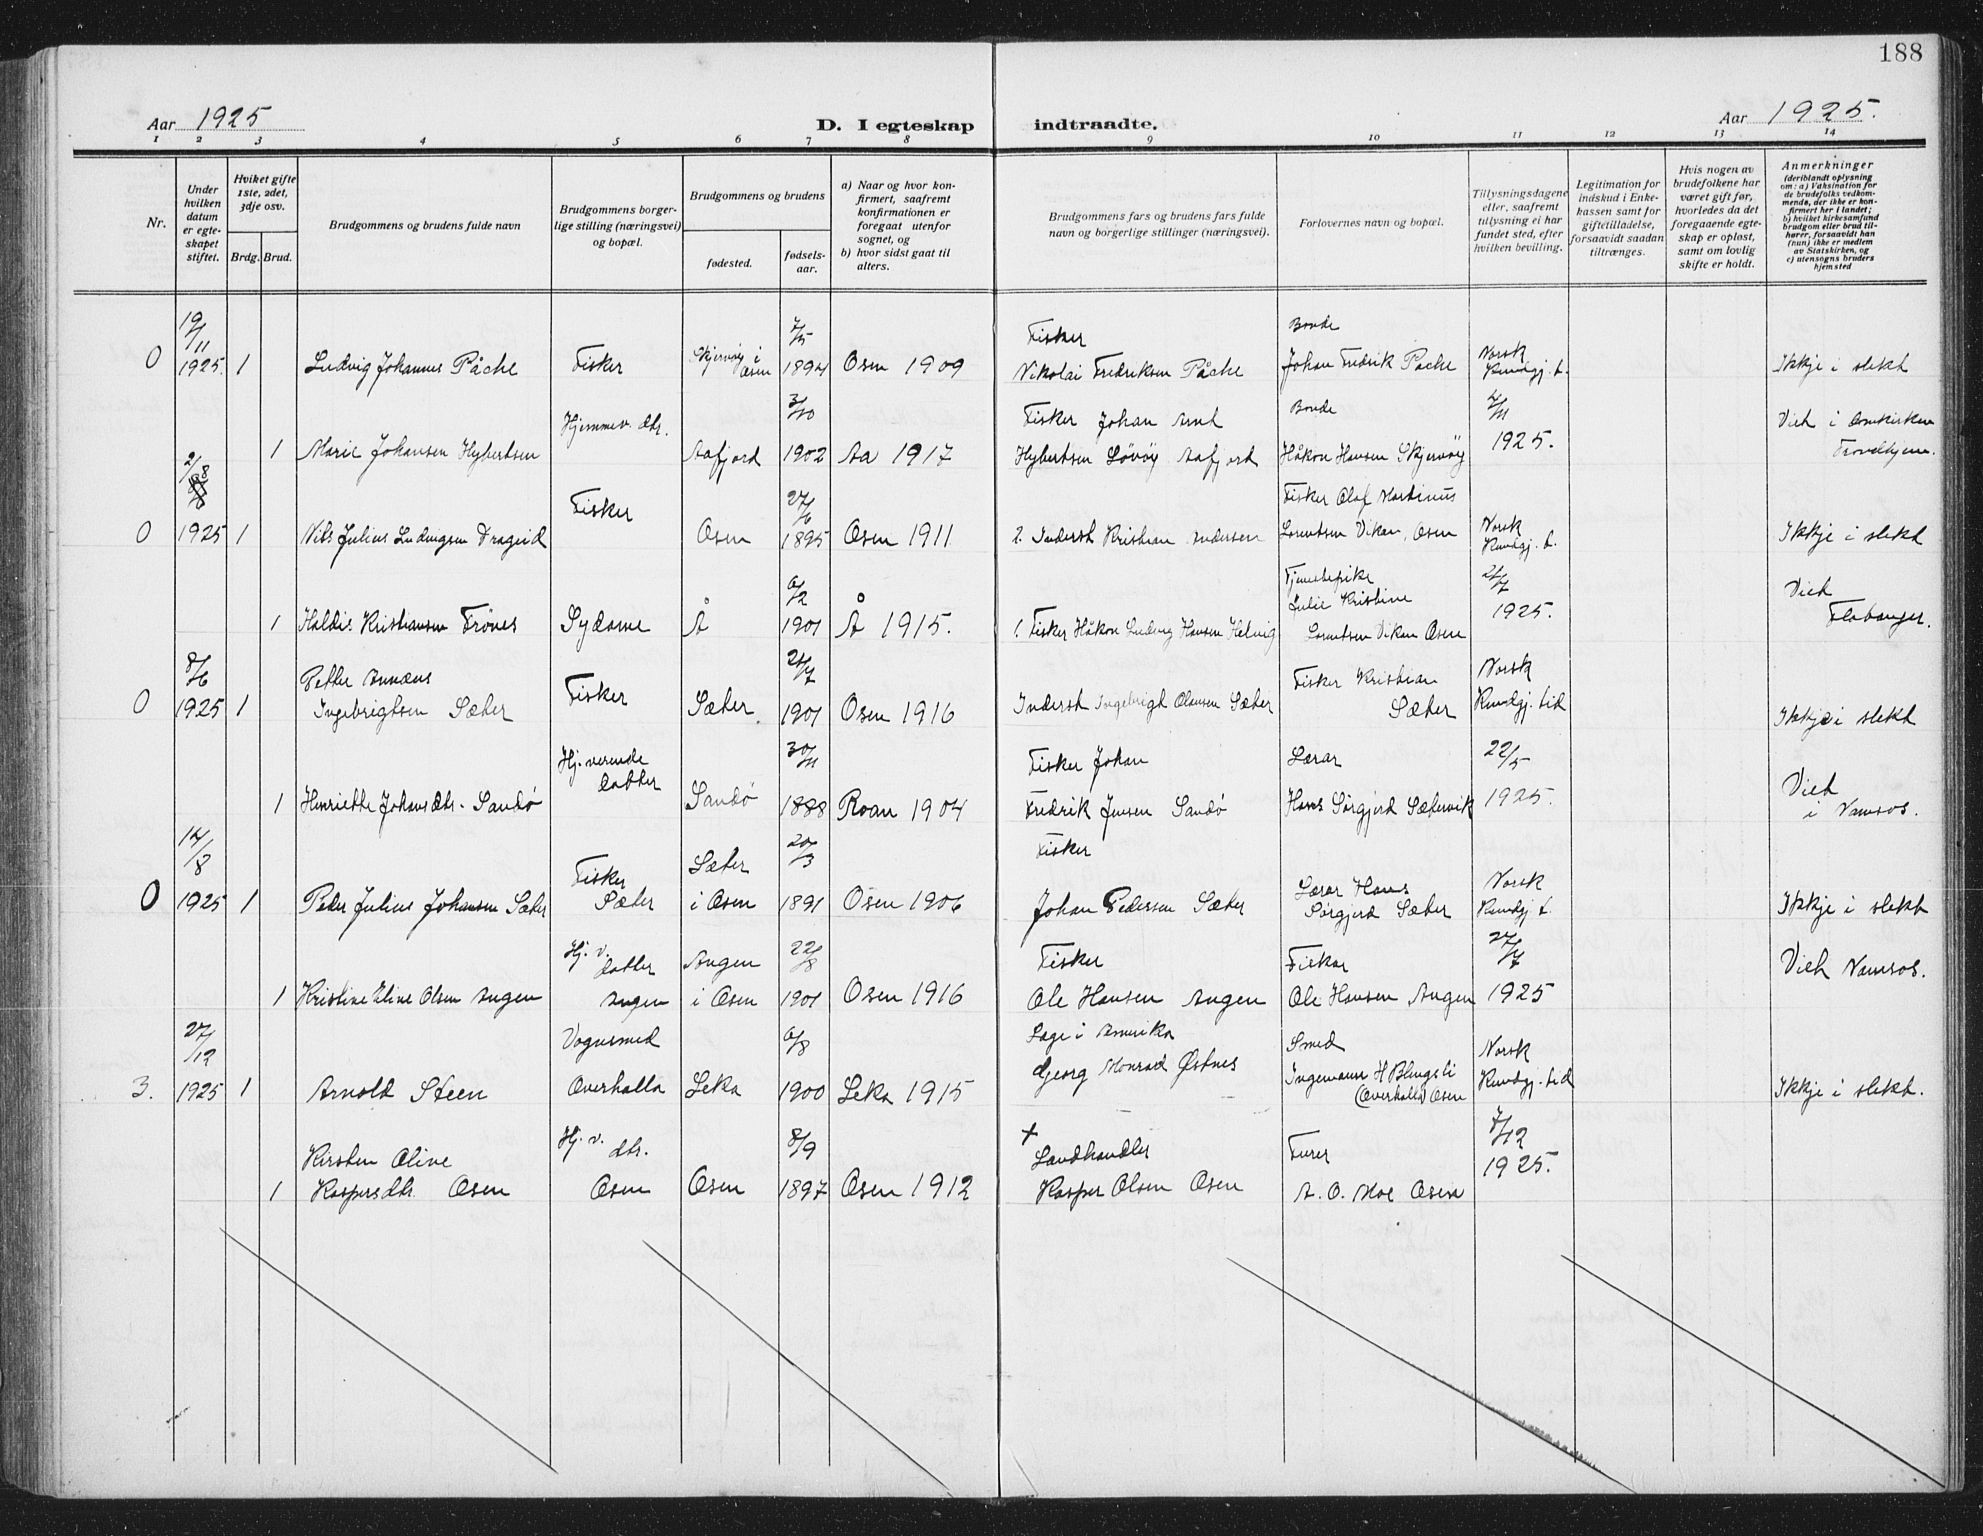 188
Aar 1925
D. I egteskap
indtraadte.
Aar 1925.
1 2 3 4 5 6 7 8 9 10 11 12 13 14
Nr.
Under hvilken datum er egteskapet stiftet.
Hviket gifte 1ste, 2det, 3dje osv.
Brdg. Brud.
Brudgommens og brudens fulde navn
Brudgommens borgerlige stilling (næringsvei) og bopæl.
Brudgommens og brudens
fødested.
fødselsaar.
a) Naar og hvor konfirmert, saafremt konfirmationen er foregaat utenfor sognet, og
b) hvor sidst gaat til alters.
Brudgommens fars og brudens fars fulde navn og borgerlige stillinger (næringsvei).
Forlovernes navn og bopæl.
Tillysningsdagene eller, saafremt tillysning ei har fundet sted, efter hvilken bevilling.
Legitimation for indskud i Enkekassen samt for giftetilladelse, forsaavidt saadan tiltrænges.
Hvis nogen av brudefolkene har været gift før, hvorledes da det foregaaende egteskap er opløst, samt om lovlig skifte er holdt.
Anmerkninger
(deriblandt oplysning om: a) Vaksination for de brudefolks vedkommende, der ikke er konfirmert her i landet; b) hvilket kirkesamfund brudgom eller brud tilhører, forsaavidt han (hun) ikke er medlem av Statskirken, og c) utensogns bruders hjemsted
0 19/11 1925. 1 Ludvig Johannes Påche Fisker Skjervöy i Osen 7/5 1894 Osen 1909 Fisker Nikolai Fredriksen Påche Bonde Johan Fredrik Påche Norsk Kundgj. t. Ikkje i slekt
1 Marie Johansen Hybertsen Hjemmev. dtr. Aafjord 3/10 1902 Aa 1917 Fisker Johan Arnt Hybertsen Lövöy Aafjord Bonde Håkon Hansen Skjervöy 1925. Vied i Domkirken Trondhjem.
0 2/8 1925 1 Nils Julius Ludvigsen Drageid Fisker Osen 27/6 1895 Osen 1911 2. Inderst Kristian Andersen Fisker Olaf Martinus Lorentsen Vikan, Osen Norsk Kundgj. t. Ikkje i slekt
1 Haldis Kristiansen Frönes Sydame Å 6/2 1901 Å 1915. 1. Fisker Håkon Ludvig Hansen Helvig Tjenestepike Julie Kristine Lorentsen Vikan Osen 1925. Vied Flatanger.
0 8/6 1925 1 Petter Annæus Ingebrigtsen Sæter Fisker Sæter 1901 Osen 1916 Inderst Ingebrigt Olausen Sæter Fisker Kristian Sæter Norsk Kundgj. tid Ikkje i slekt
1 Henriette Johansdtr. Sandö Hj. verende datter Sandö 30/11 1888 Roan 1904 Fisker Johan Fredrik Jensen Sandö Lærar Hans Sörgjerd Sætervik 22/5 1925. Vied i Namsos.
0 14/8 1925 1 Peder Julius Johansen Sæter Fisker Sæter Sæter i Osen 20/3 1891 Osen 1906 Fisker Johan Pedersen Sæter Lærar Hans Sörgjerd Sæter Norsk Kundgj. t. Ikkje i slekt
1 Kristine Eline Olsen Angen Hj. v. datter Angen Angen i Osen 22/8 1901 Osen 1916 Fisker Ole Hansen Angen Fiskar Ole Hansen Angen 27/7 1925 Vied Namsos.
3. 27/12 1925 1 Arnold Steen Vognsmed Overhalla Leka 6/8 1900 Leka 1915 Læge i Amerika Georg Monrad Østnes Smed Ingemann H Blengsli (Overhalla) Osen Norsk Kundgj. tid Ikkje i slekt.
1 Kirsten Oline Kaspersdtr. Osen Hj. v. dtr. Osen Osen 8/9 1897 Osen 1912 + Landhandler Kasper Olsen Osen Furer A. O. Moe Osen 7/12 1925.